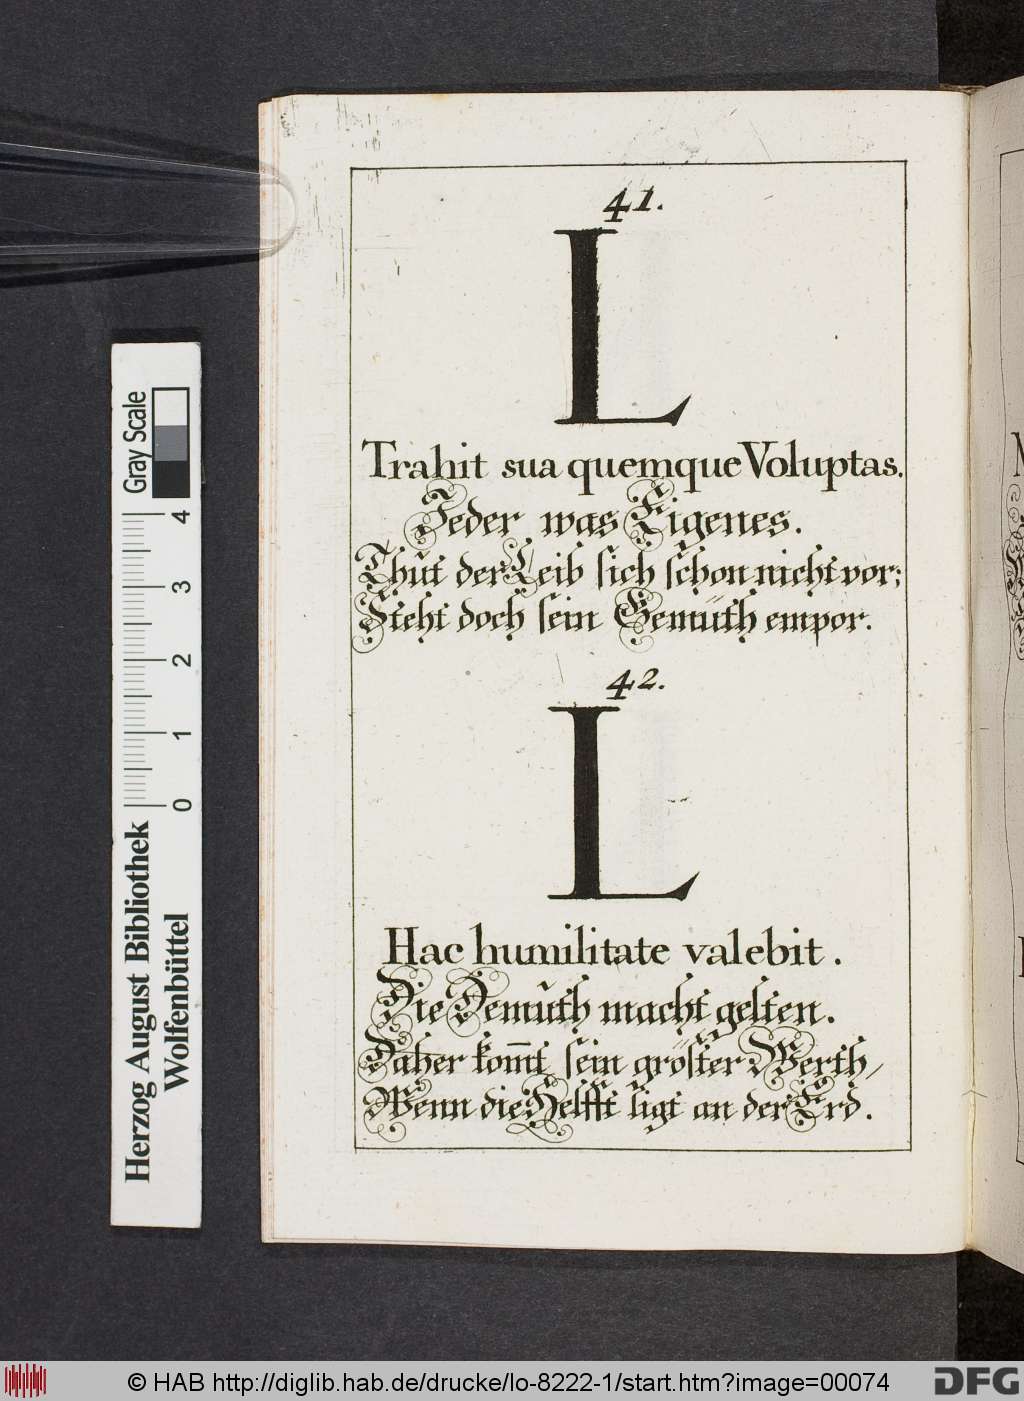 41.
L
Trahit sua quemque Voluptas.
Jeder was Eigenes.
Thut der Leib sich schon nicht vor;
Steht doch sein Gemüth empor.
42.
L
Hac humilitate valebit.
Die Demuth macht gelten.
Daher kom̄t sein gröster Werth,
Wenn die Helfft ligt an der Erd.
Gray Scale
4
3
2
1
0
Herzog August Bibliothek
Wolfenbüttel
© HAB http://diglib.hab.de/drucke/lo-8222-1/start.htm?image=00074
DFG